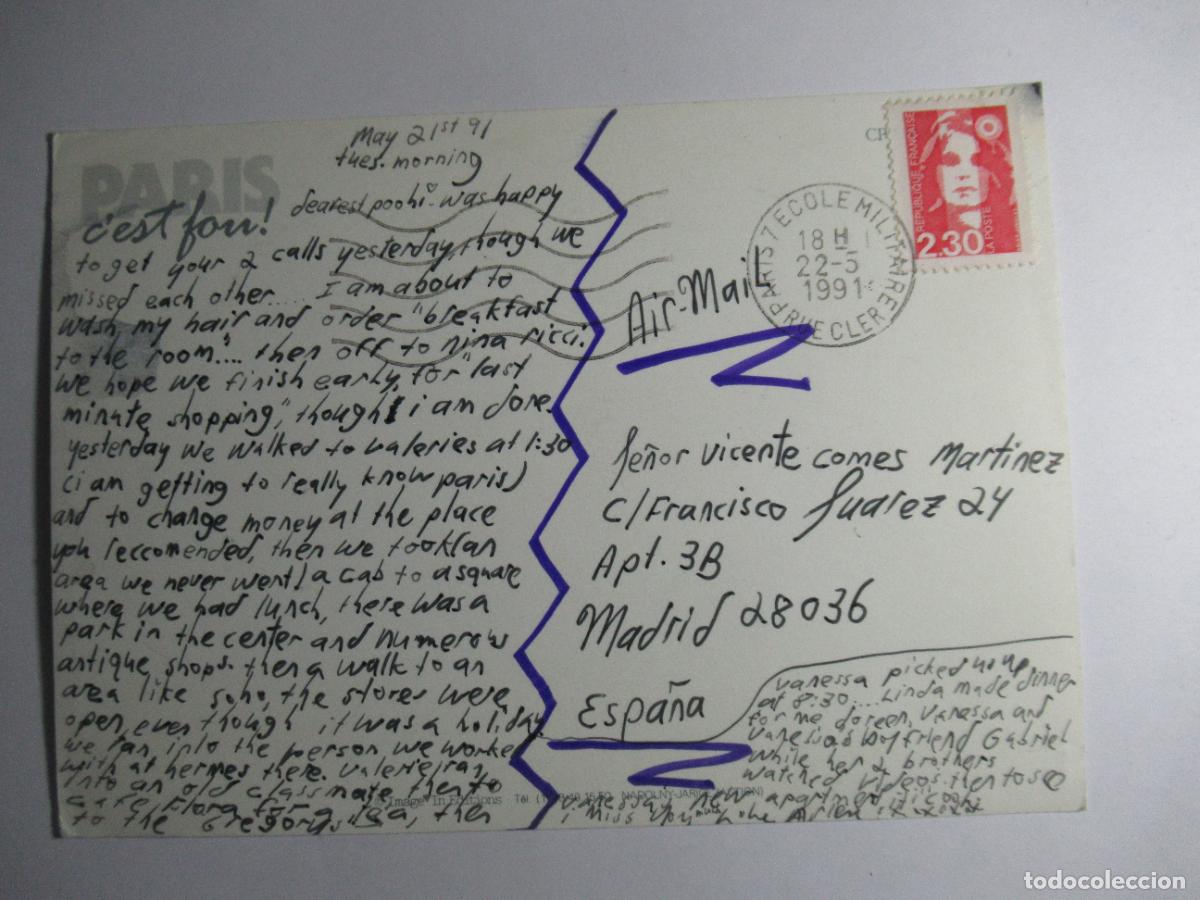 PARIS
c'est fou!
May 21st 91
tues. morning
dearest poohi - was happy
to get your 2 calls yesterday, though we
missed each other.... I am about to
wash my hair and order "breakfast
to the room".... then off to nina ricci.
we hope we finish early, for "last
minute shopping," though i am done.
yesterday we walked to valeries at 1:30
(i am getting to really know paris)
and to change money at the place
you reccomended, then we took (an
area we never went) a cab to a square
where we had lunch, there was a
park in the center and numerous
antique shops. then a walk to an
area like soho, the stores were
open, even though it was a holiday.
we ran into the person we worked
with at hermes there. valerie ran
into an old classmate. then to
cafe flora for tea, then
to the Gregorys"
vanessa picked us up
at 8:30.... Linda made dinner
for me, doreen, vanessa and
vanessas boyfriend Gabriel
while her 2 brothers
watched videos. then to see
vanessas new apartment.
i miss you much Love Arlene
Image In Editions Tél.
Air-Mail
Señor Vicente Comes Martinez
C/Francisco Suarez 24
Apt. 3B
Madrid 28036
España
CP
REPUBLIQUE FRANÇAISE
2.30
LA POSTE
PARIS 7 ECOLE MILITAIRE
18 H
22-5
1991
RUE CLER
todocoleccion